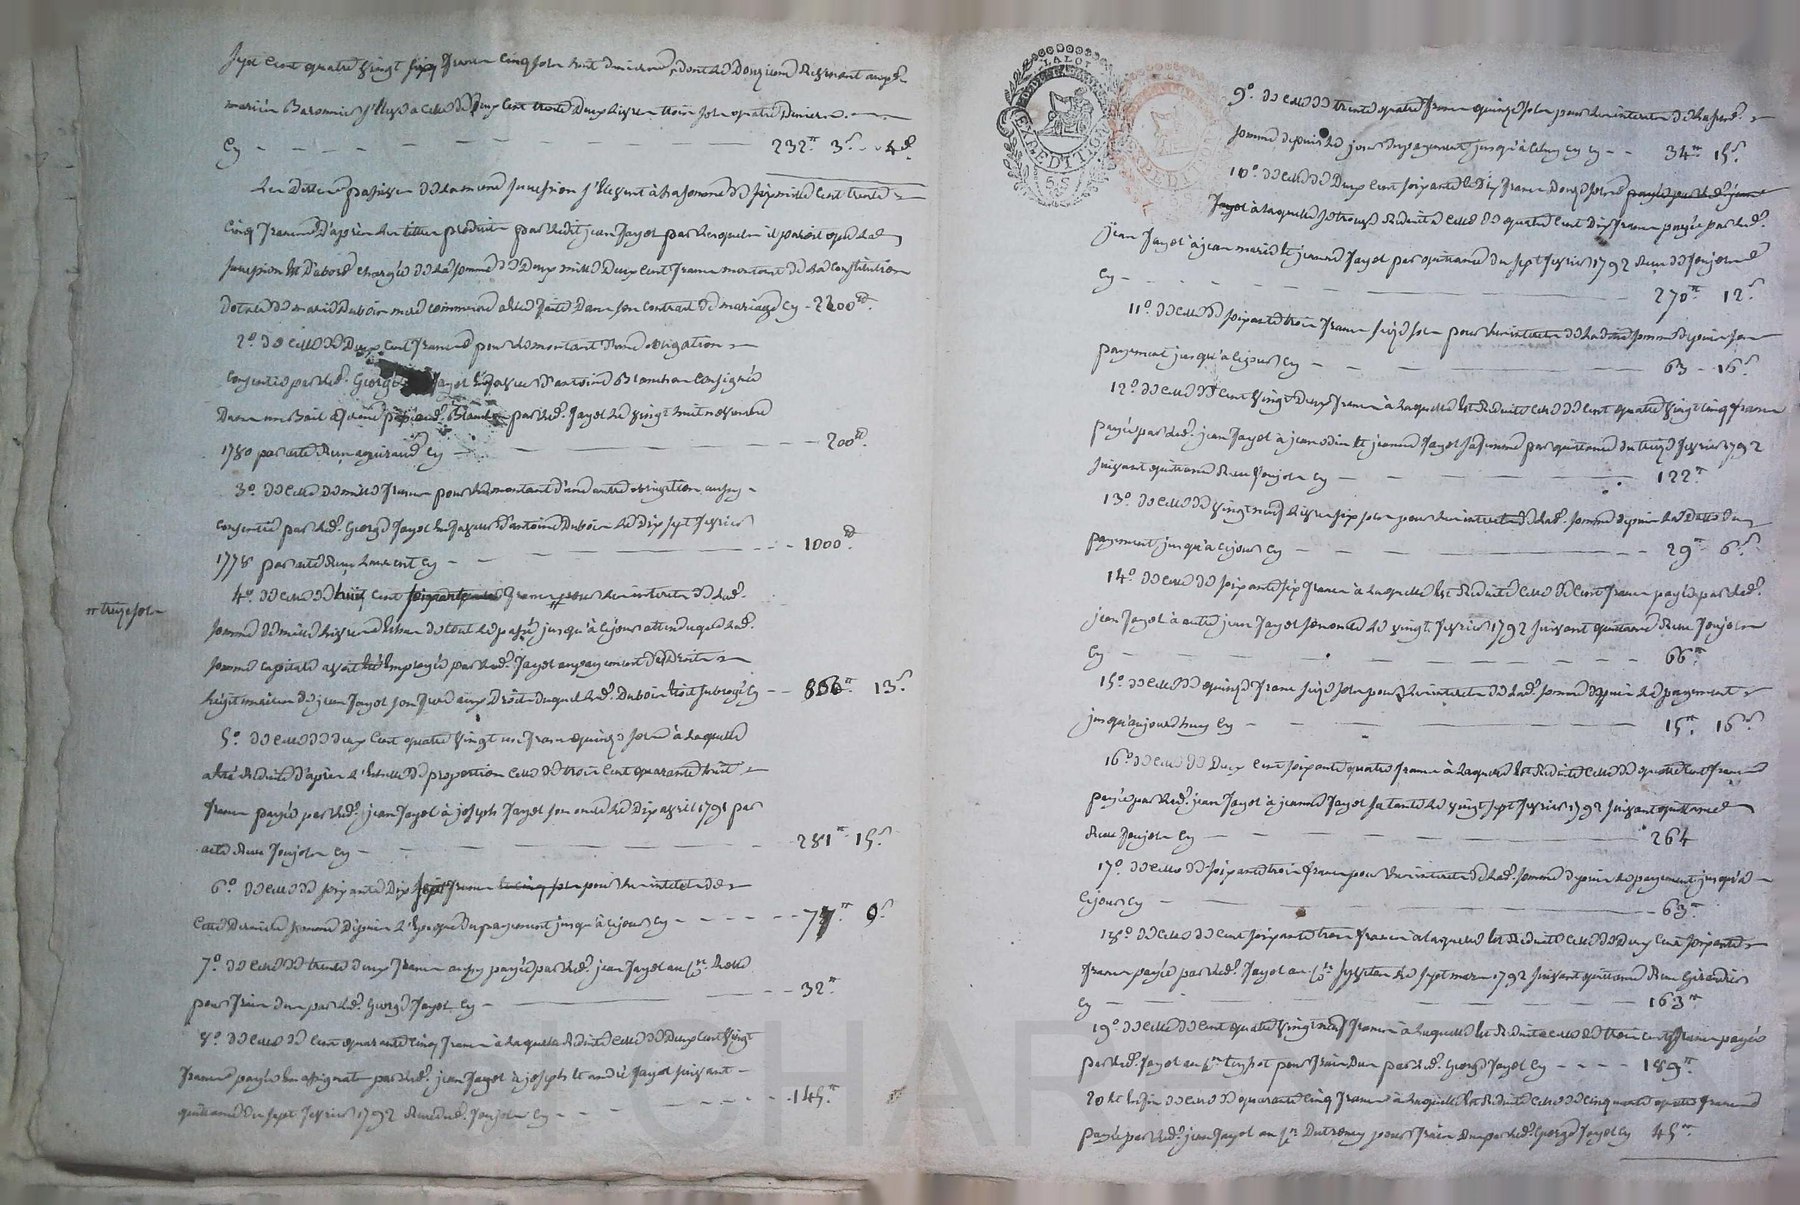 Sept cent quatre vingt six francs cinq sols huit deniers, dont le douzieme revenant auxd.
mariés Baronnier s'élève à celle de deux cent trente deux livres trois sols quatre deniers.
Cy 232tt 3s 4d.
Les dettes passives de la meme succession s'élèvent à la somme de six mille cent trente
cinq francs d'après les titres produits par ledit jean Jayol par lesquels il paroit que lad.
succession est d'abord chargée de la somme de deux mille deux cent francs montant de la constitution
dotale de marie Dubois mere commune à elle faite dans son contrat de mariage Cy - 2200tt.
2o. de celle de deux cent francs pour le montant d'une obligation
consentie par led. George Jayol en faveur d'antoine Blanchon consignée
dans un Bail à ferme passé aud. Blanchon par led. Jayol le vingt huit novembre
1780 par acte reçu Cy 200tt.
3o. de celle de mille francs pour le montant d'une autre obligation aussy
consentie par led. George Jayol en faveur d'antoine Dubois le dix sept fevrier
1778 par acte reçu Laurent Cy 1000tt.
4o. de celle de huit cent soixante six francs pour les interets de lad.
tt treize sols
somme de mille livres échus de tout le passé jusqu'à ce jour attendu que lad.
somme capitale avoit été employée par led. Jayol au payement des droits
légitimaires de jean Jayol son frere aux droits duquel led. Dubois étoit subrogé Cy 866tt 13s
5o. de celle de deux cent quatre vingt un francs quinze sols à laquelle
a été réduite d'après l'échelle de proportion celle de trois cent quarante huit
francs payée par led. jean Jayol à joseph Jayol son oncle le dix avril 1791 par
acte reçu Joujol Cy 281tt 15s.
6o. de celle de soixante dix sept francs pour les interets de
cette derniere somme depuis l'époque du payement jusqu'à ce jour Cy 77tt 0s
7o. de celle de trente deux francs aussy payée par led. jean Jayol au sr.
pour frais dus par led. George Jayol Cy 32tt
8o. de celle de cent quarante cinq francs à laquelle est réduite celle de deux cent vingt
francs payée en assignats par led. jean Jayol à joseph et andré Jayol suivant
quittance du sept fevrier 1792 reçue Joujol Cy 145tt.
LA LOI
EXPEDITION
9o. de celle de trente quatre francs quinze sols pour les interets de la susd.
somme depuis le jour du payement jusqu'à celuy cy Cy 34tt 15s.
10o. de celle de deux cent soixante et dix francs douze sols payée par led. jean
Jayol à laquelle se trouve réduite celle de quatre cent dix francs payée par led.
jean Jayol à jean marie et jeanne Jayol par quittance du sept fevrier 1792 reçue Joujol
Cy 270tt 12s
11o. de celle de soixante trois francs seize sols pour les interets de la dite somme depuis son
payement jusqu'à ce jour Cy 63 - 16s
12o. de celle de cent vingt deux francs à laquelle est réduite celle de cent quatre vingt cinq francs
payée par led. jean Jayol à jean et jeanne Jayol sa femme par quittance du treize fevrier 1792
suivant quittance reçue Joujol Cy 122tt
13o. de celle de vingt neuf livres six sols pour les interets de lad. somme depuis la date du
payement jusqu'à ce jour Cy 29tt 6s.
14o. de celle de soixante six francs à laquelle est réduite celle de cent francs payée par led.
jean Jayol à autre jean Jayol son oncle le vingt fevrier 1792 suivant quittance reçue Joujol
Cy 66tt
15o. de celle de quinze francs seize sols pour les interets de lad. somme depuis le payement
jusqu'aujourd'huy Cy 15tt. 16s
16o. de celle de deux cent soixante quatre francs à laquelle est réduite celle de quatre cent francs
payée par led. jean Jayol à jeanne Jayol sa tante le vingt sept fevrier 1792 suivant quittance
reçue Joujol Cy 264
17o. de celle de soixante trois francs pour les interets de lad. somme depuis le payement jusqu'à
ce jour Cy 63tt
18o. de celle de cent soixante trois francs à laquelle est réduite celle de deux cent soixante
francs payée par led. Jayol au sr. le sept mars 1792 suivant quittance reçue
Cy 163tt
19o. de celle de cent quatre vingt neuf francs à laquelle est réduite celle de trois cent francs payée
par led. Jayol au sr. pour frais dus par led. George Jayol Cy 189tt.
20 et enfin de celle de quarante cinq francs à laquelle est réduite celle de cinquante quatre francs
payée par led. jean Jayol au sr. pour frais dus par led. George Jayol Cy 45tt.